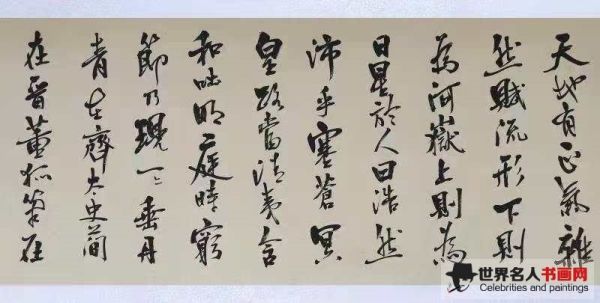 天地有正氣雜
然賦流形下則
為河嶽上則為
日星於人曰浩然
沛乎塞蒼冥
皇路當清夷含
和吐明庭時窮
節乃現一一垂丹
青在齊太史簡
在晋董狐筆在
世界名人书画网
Celebrities and paintings